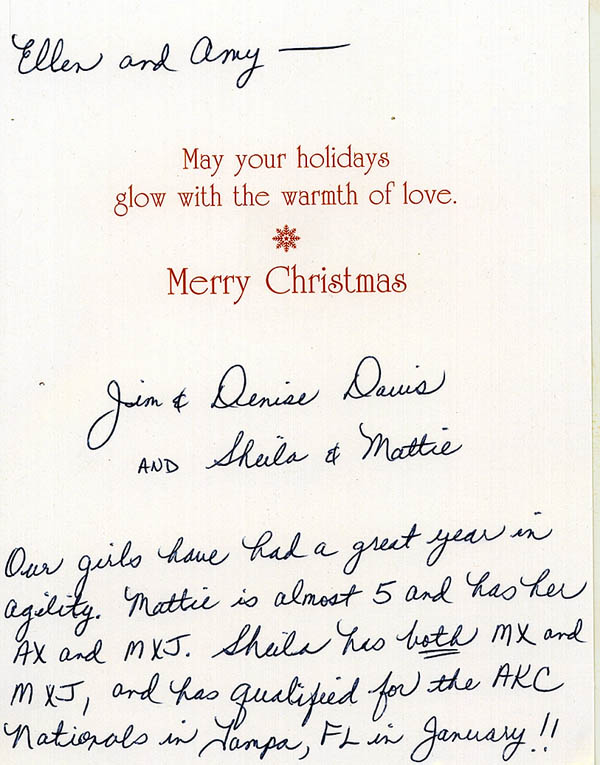 Ellen and Amy —
May your holidays
glow with the warmth of love.
Merry Christmas
Jim & Denise Davis
AND Sheila & Mattie
Our girls have had a great year in
agility. Mattie is almost 5 and has her
AX and MXJ. Sheila has both MX and
MXJ, and has qualified for the AKC
Nationals in Tampa, FL in January!!